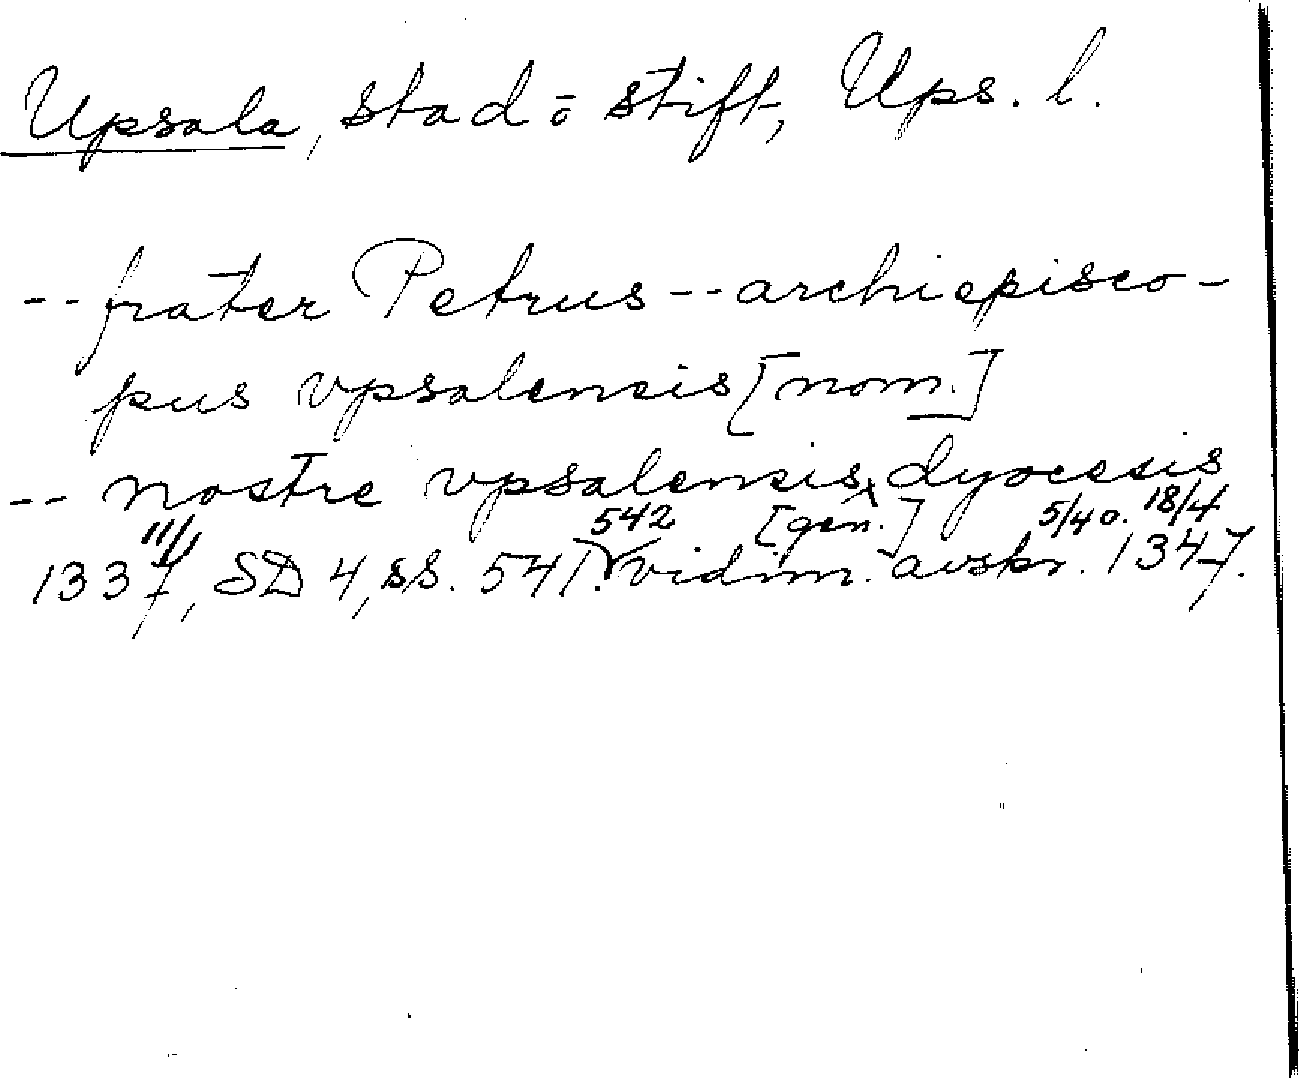 Upsala, stad o stift, Ups. l.
-- frater Petrus -- archiepisco-
pus vpsalensis [nom.]
-- nostre vpsalensis dyocesis
542 [gen.] 5/40. 18/4
11/1
1337, SD 4, ss. 541. vidim. avskr. 1347.